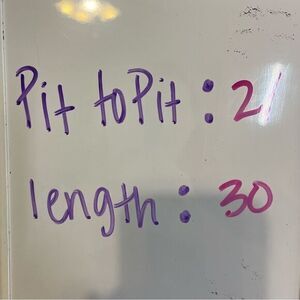 Pit to Pit : 21
length : 30